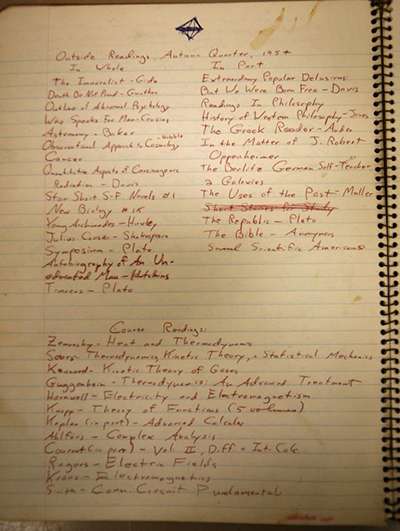 Outside Readings, Autumn Quarter, 1954
In Whole
The Immoralist - Gide
Death Be Not Proud - Gunther
Outline of Abnormal Psychology
Who Speaks For Man - Cousins
Astronomy - Baker
Observational Approach to Cosmology - Hubble
Cancer
Quantitative Aspects of Carcinogenic
Radiation - Davis
Star Short S-F Novels #1
New Biology
Young Archimedes - Huxley
Julius Caesar - Shakespeare
Symposium - Plato
Autobiography of An Un-
educated Man - Hutchins
Timaeus - Plato
In Part
Extraordinary Popular Delusions
But We Were Born Free - Davis
Readings In Philosophy
History of Western Philosophy - Jones
The Greek Reader - Auden
In the Matter of J. Robert
Oppenheimer
The Berlitz German Self-Teacher
2 Galaxies
The Uses of the Past - Muller
Short Stories for Study
The Republic - Plato
The Bible - Anonymous
Several Scientific Americans
Course Readings:
Zemansky - Heat and Thermodynamics
Sears - Thermodynamics, Kinetic Theory, + Statistical Mechanics
Kennard - Kinetic Theory of Gases
Guggenheim - Thermodynamics: An Advanced Treatment
Harnwell - Electricity and Electromagnetism
Knopp - Theory of Functions (5 volumes)
Kaplan (in part) - Advanced Calculus
Ahlfors - Complex Analysis
Courant (in part) - Vol. II, Diff + Int. Calc
Rogers - Electric Fields
Kraus - Electromagnetics
Smith - Circuit Fundamentals